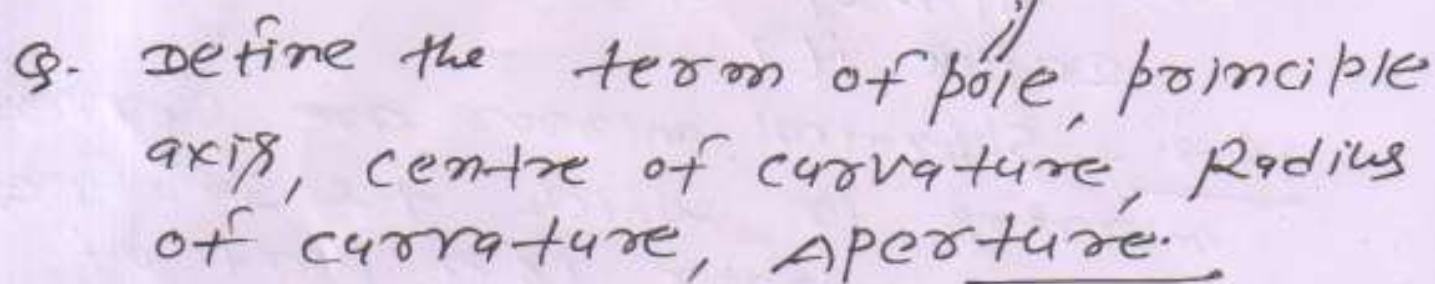 Q. Define the term of pole, principle
axis, centre of curvature, Radius
of curvature, Aperture.